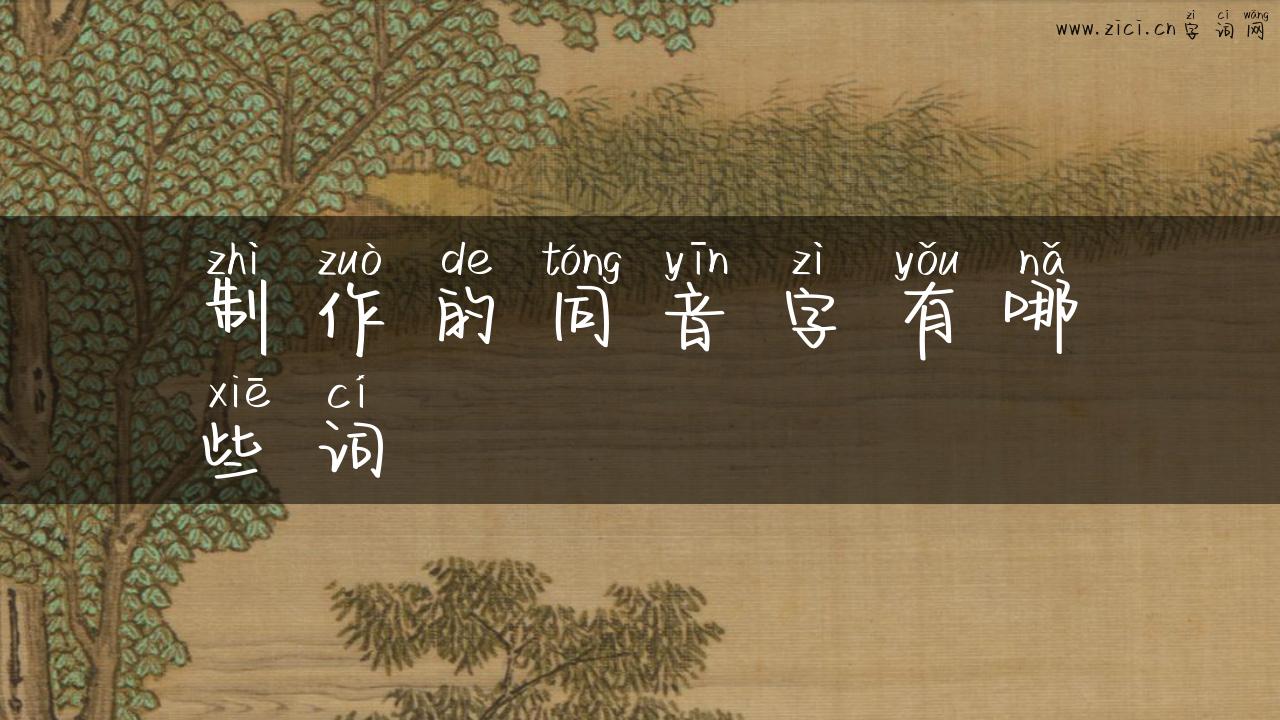 zì cí wǎng
www.zici.cn字词网
zhì zuò de tóng yīn zì yǒu nǎ
制作的同音字有哪
xiē cí
些词